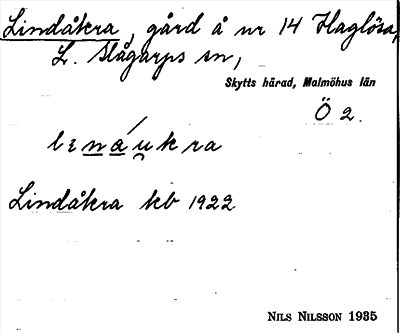 Lindåkra, gård å nr 14 Haglösa,
L. Slågarps sn,
Skytts härad, Malmöhus län
Ö 2.
Lindåkra kb 1922
NILS NILSSON 1935